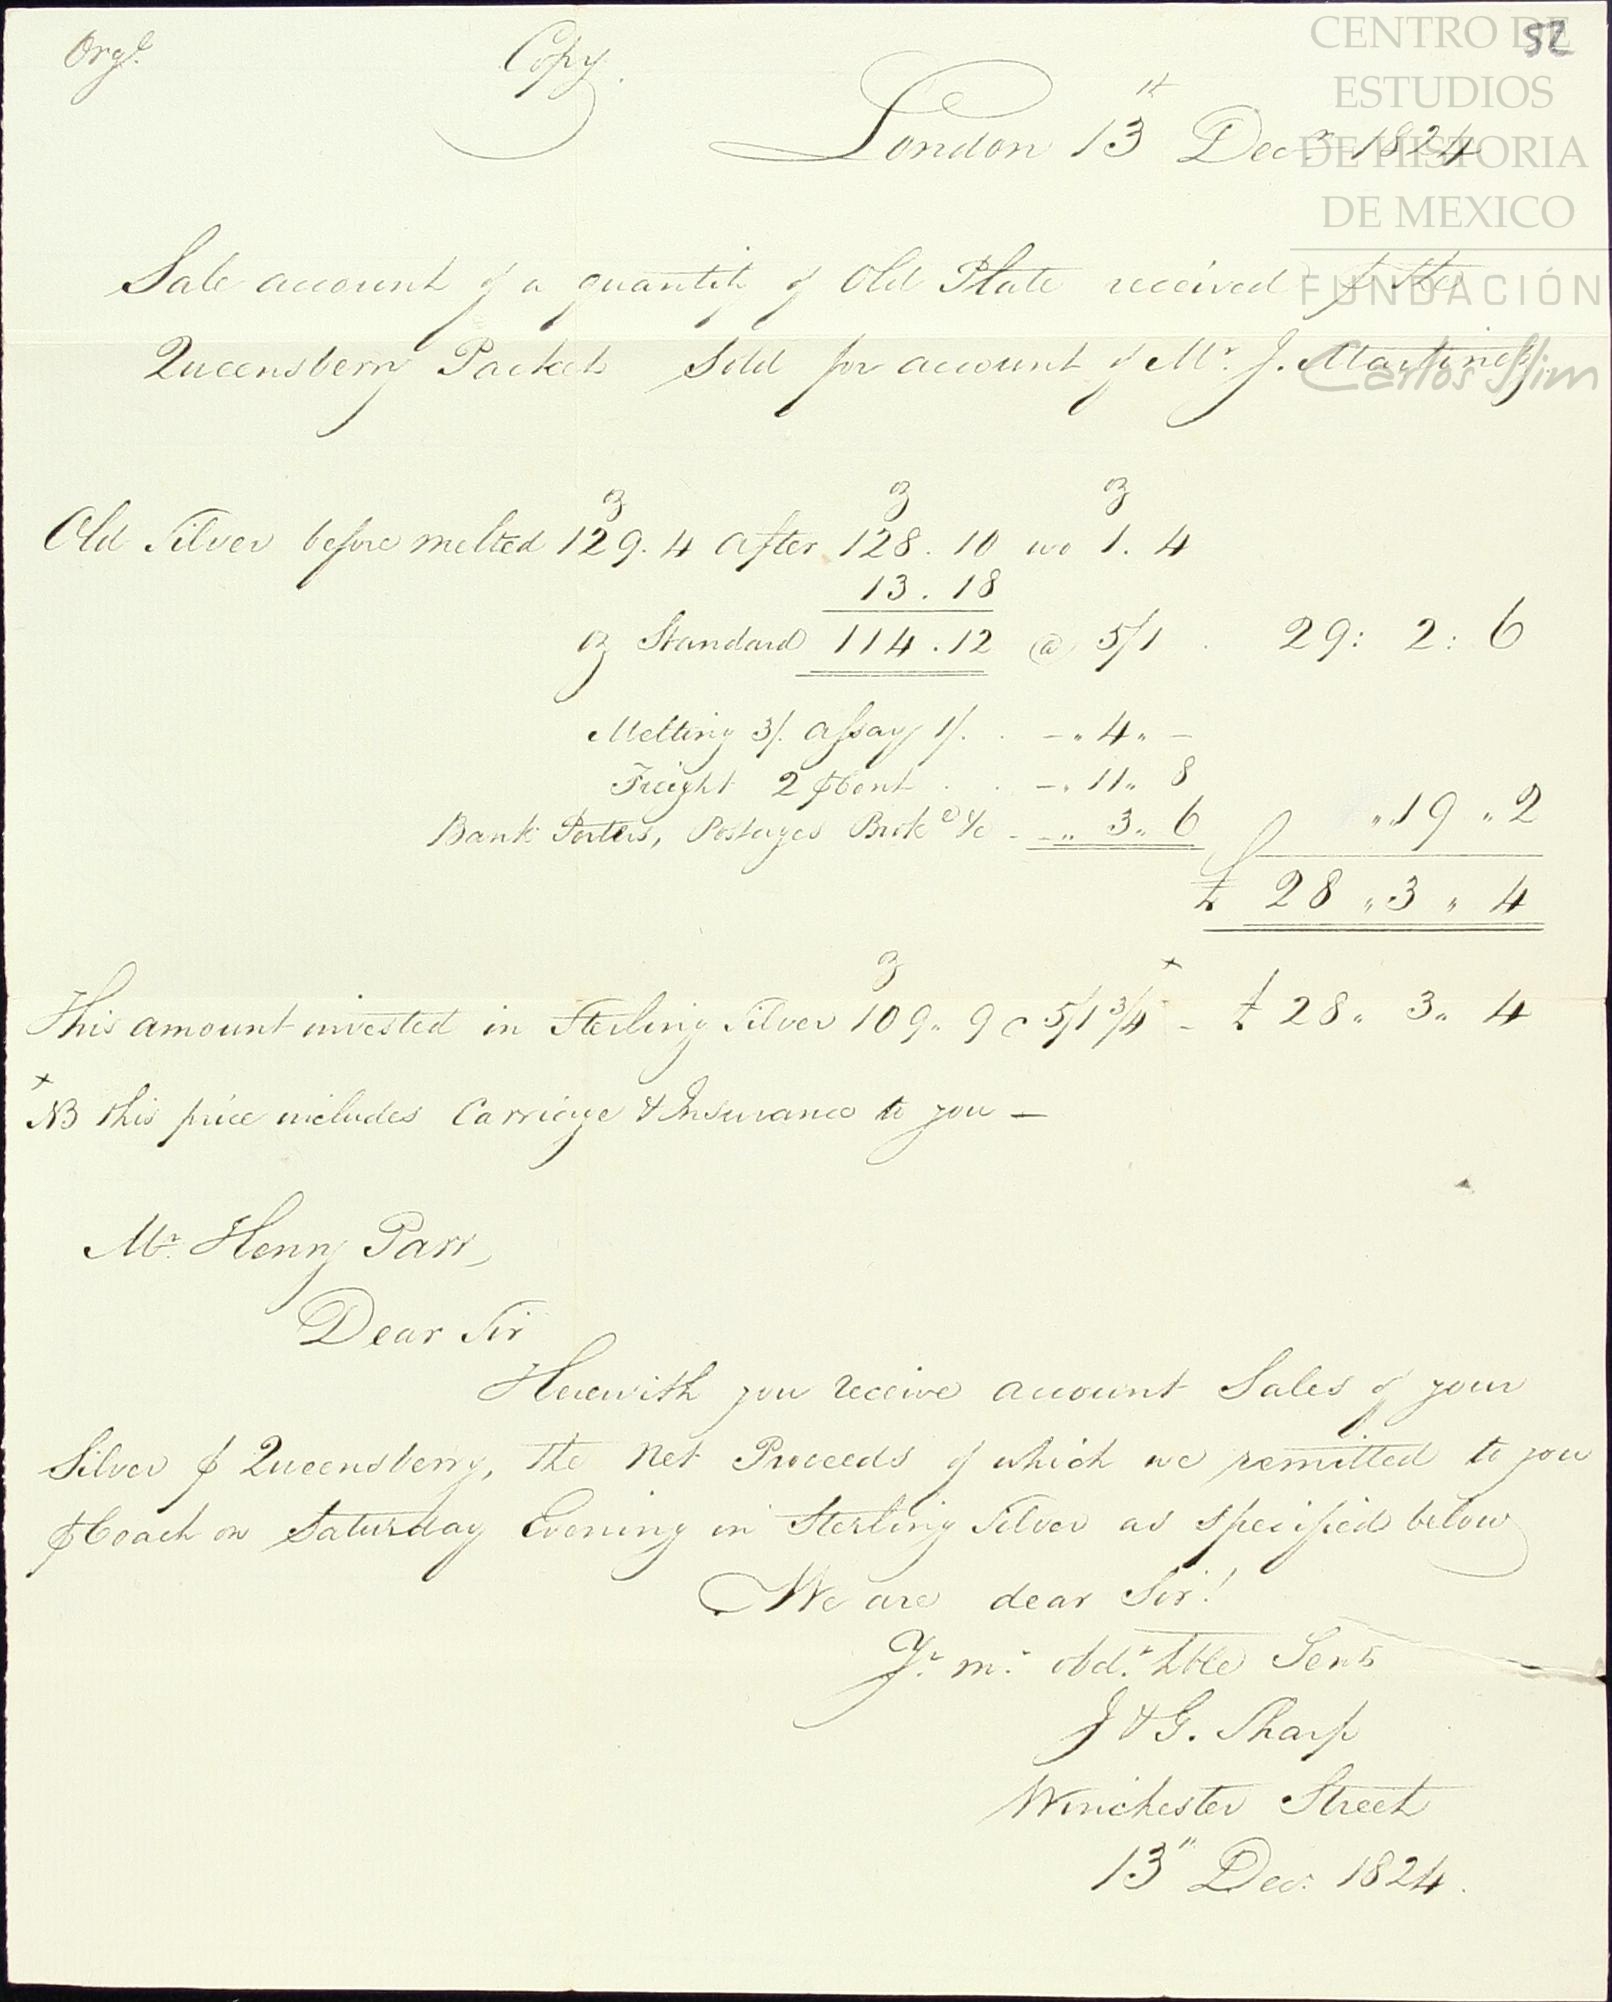 Orgl. Copy. 52
London 13th Decr. 1824
Sale account of a quantity of Old Plate received ⅌ the
Queensberry Packet Sold for account of Mr. J. Martinez
oz oz oz
Old Silver before melted 129. 4 after 128. 10 wo 1. 4
13. 18
oz Standard 114. 12 @ 5/1 . 29: 2: 6
Melting 3/. assay 1/. . -„ 4„ -
Freight 2 ⅌Cent . . -„ 11„ 8
Bank Porters, Postages Broke &c - -„ 3„ 6 „19„2
£ 28„3„4
oz
This amount invested in Sterling Silver 109„ 9 @ 5/1 3/4 x - £ 28„ 3„ 4
x
NB this price includes Carriage & Insurance to you —
Mr. Henry Parr,
Dear Sir
Herewith you receive account Sales of your
Silver ⅌ Queensberry, the net Proceeds of which we remitted to you
⅌Coach on Saturday Evening in Sterling Silver as specified below
We are dear Sir!
Yr. mo. obdt. hble Servts
J & G. Sharp
Winchester Street
13" Dec. 1824.
CENTRO DE
ESTUDIOS
DE HISTORIA
DE MEXICO
FUNDACIÓN
Carlos Slim